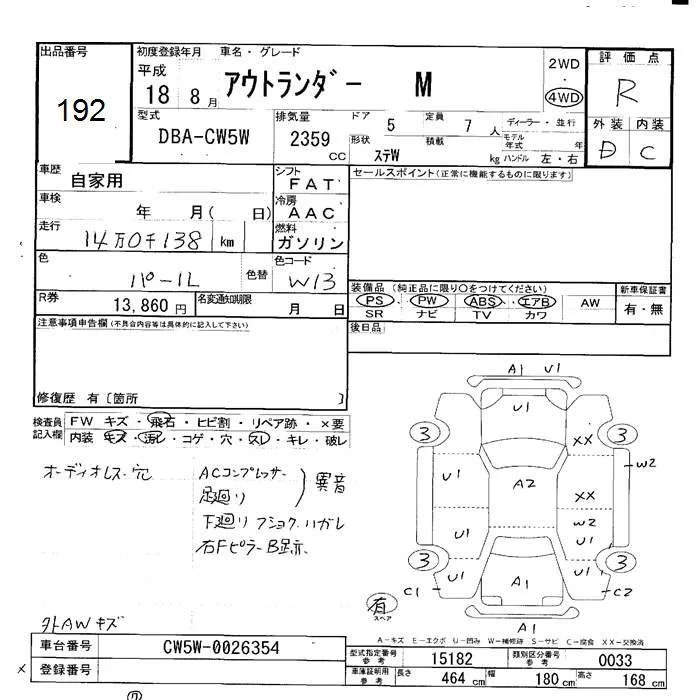 出品番号
192
初度登録年月 車名・グレード
平成 18 8月 アウトランダー M
2WD
・
4WD
評価点
R
外装 内装
D C
型式 DBA-CW5W
排気量 2359 CC
ドア 5 定員 7 人
ディーラー・並行
形状 ステW 積載 kg
モデル年式 年式
ハンドル 左・右
車歴 自家用
シフト FAT
車検 年 月( 日)
冷房 AAC
走行 14万0千138 km
燃料 ガソリン
色 パール 色替
色コード W13
R券 13,860円
名変通知期限 月 日
セールスポイント(正常に機能するものに限ります)
装備品 (純正品に限り○をつけてください)
PS PW ABS エアB AW
SR ナビ TV カワ
新車保証書
有・無
後日品
注意事項申告欄(不具合内容等は具体的に記入して下さい)
修復歴 有〔箇所 〕
検査員記入欄
FW キズ・飛石・ヒビ割・リペア跡・×要
内装 キズ・汚レ・コゲ・穴・スレ・キレ・破レ
オーディオレス・穴
ACコンプレッサー
足廻リ
異音
下廻リ フショク・ハガレ
右FピラーB跡
外AWキズ
A1 U1
U1
3 3
XX
U1 W2
A2
XX
W2
U1 U1
3 3
U1 U1
C1 A1 C2
有
スペア
A1
A-キズ E-エクボ U-凹み W-補修跡 S-サビ C-腐食 XX-交換済
車台番号 CW5W-0026354
登録番号
型式指定番号 参考 15182
類別区分番号 参考 0033
車庫証明用 参考 長さ 464 cm 幅 180 cm 高さ 168 cm